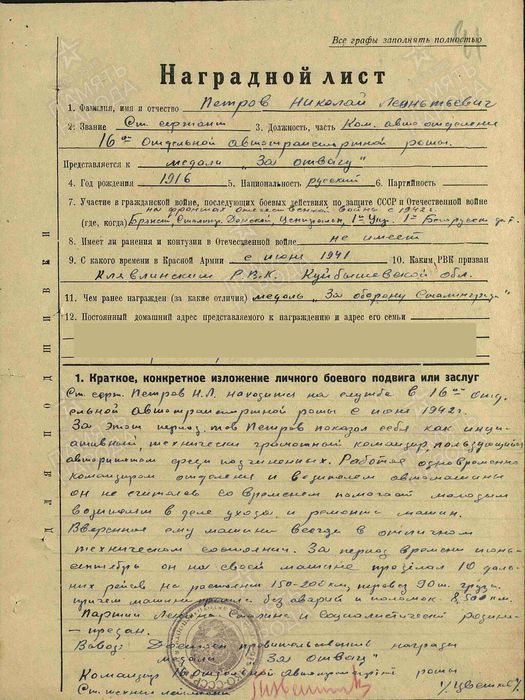 Все графы заполнять полностью
Наградной лист
1. Фамилия, имя и отчество Петров Николай Леонтьевич
2. Звание Ст. сержант 3. Должность, часть Ком. автоотделения
16ой Отдельной автотранспортной роты.
Представляется к медали „За отвагу"
4. Год рождения 1916 5. Национальность русский 6. Партийность
7. Участие в гражданской войне, последующих боевых действиях по защите СССР и Отечественной войне
на фронтах отечественной войны с 1942 г.
(где, когда) Брянск. Сталингр. Донской, Центральн, 1й Укр. 1й Белорусск
8. Имеет ли ранения и контузии в Отечественной войне не имеет
9. С какого времени в Красной Армии с июня 1941 10. Каким РВК призван
Клявлинским Р.В.К. Куйбышевской обл.
11. Чем ранее награжден (за какие отличия) медаль „За оборону Сталинграда"
12. Постоянный домашний адрес представляемого к награждению и адрес его семьи
1. Краткое, конкретное изложение личного боевого подвига или заслуг
Ст. серж. Петров Н.Л. находится на службе в 16ой отд-
ельной автотранспортной роты с июня 1942г.
За этот период тов Петров показал себя как иници-
ативный технически грамотный командир, пользующийся
авторитетом среди подчиненных. Работая одновременно
командиром отделения и водителем автомашины
он не считался со временем помогает молодым
водителям в деле ухода и ремонта машин.
Вверенные ему машины всегда в отличном
техническом состоянии. За период времени июнь-
сентябрь он на своей машине проделал 10 даль-
них рейсов на расстояние 150-200 км, перевез 90 т. груза.
причем машина прошла без аварий и поломок 8,500 км.
Партии Ленина-Сталина и социалистической родине
– предан.
Вывод: Достоин правительственной награды
медали „За отвагу"
Командир отдельной автотранспортной роты
Ст. техник лейтенант /Цветков/
ДЛЯ ПОДШИВКИ
ПАМЯТЬ НАРОДА